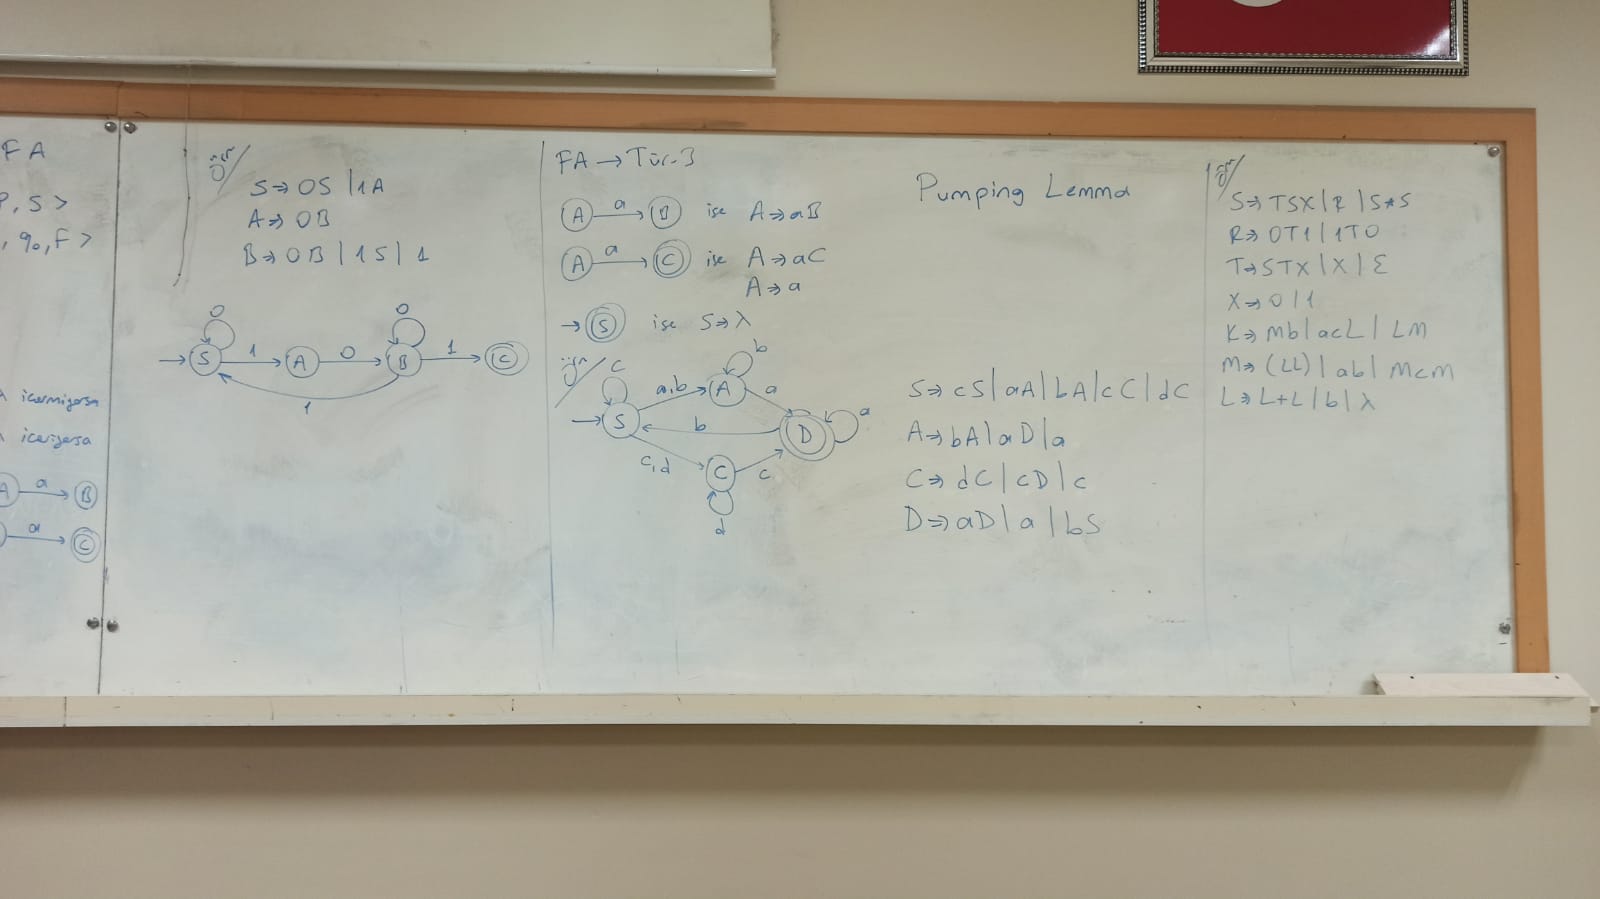 FA
P, S >
, q0, F >
λ içermiyorsa
λ içeriyorsa
A a B
a C
ör/
S⇒0S | 1A
A⇒0B
B⇒0B | 1S | 1
0 0
S 1 A 0 B 1 C
1
FA → Tür-3
A a B ise A⇒aB
A a C ise A⇒aC
A⇒a
→ S ise S⇒λ
ör/
c b
S a,b A a
b D a
c,d C c
d
Pumping Lemma
S⇒cS|aA|bA|cC|dC
A⇒bA|aD|a
C⇒dC|cD|c
D⇒aD|a|bS
ör/
S⇒TSX|R|S*S
R⇒0T1|1T0
T⇒STX|X|Ɛ
X⇒0|1
K⇒Mb|acL|LM
M⇒(LL)|ab|McM
L⇒L+L|b|λ